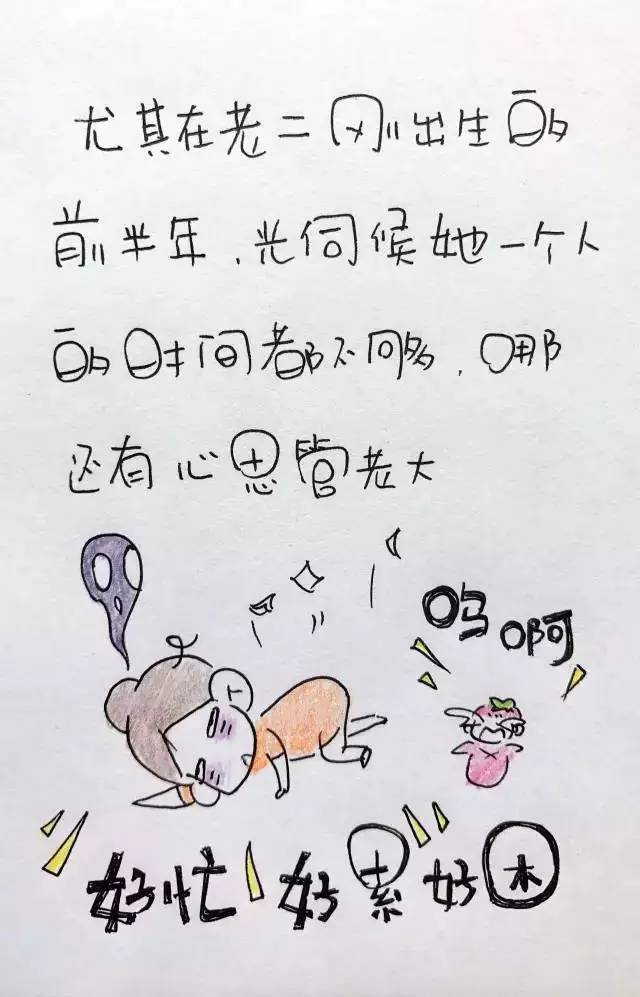 尤其在老二刚出生的
前半年，光伺候她一个人
的时间都不够，哪
还有心思管老大
呜啊
好忙 好累 好困